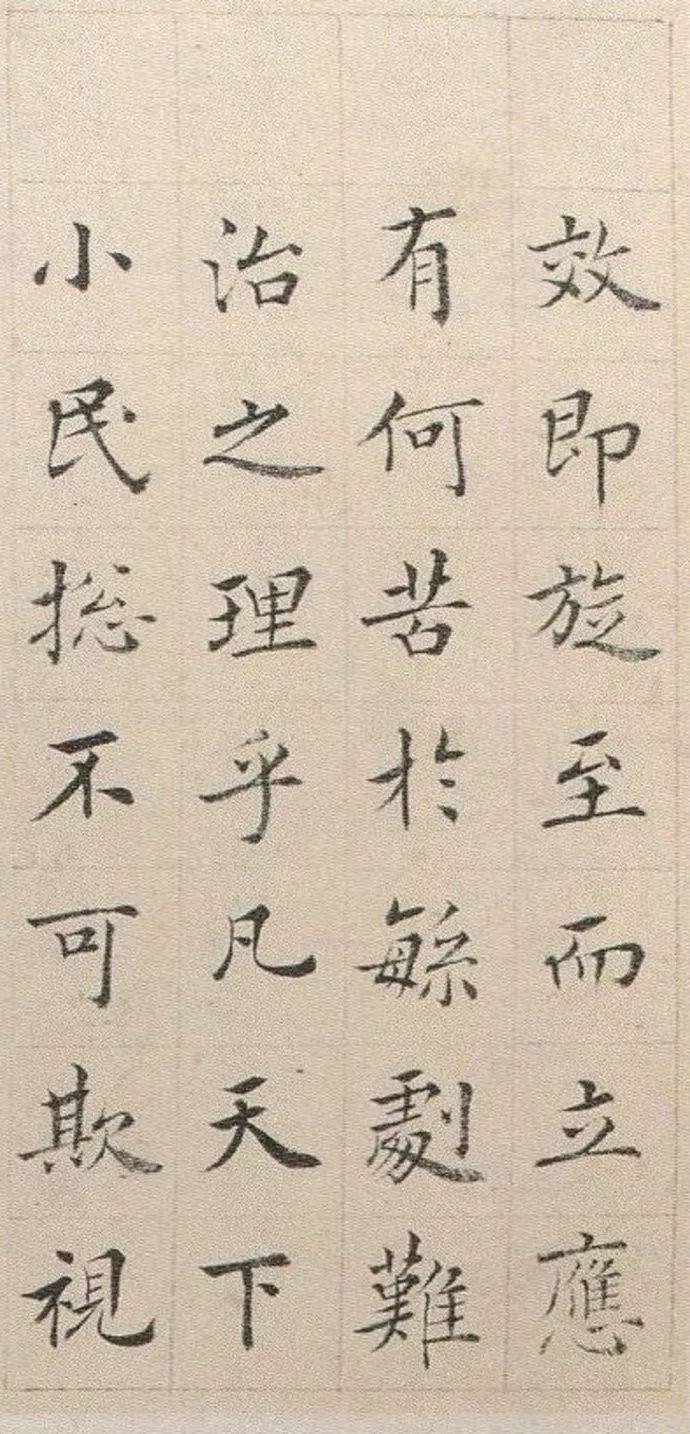 效即旋至而立應
有何苦於緐劇難
治之理乎凡天下
小民揔不可欺視